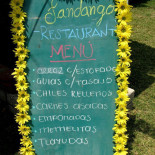 Fandango
RESTAURANT
MENÚ
• ARROZ C/ESTOFADO
• GUIAS C/TASAJO
• CHILES RELLENOS
• CARNES ASADAS
• EMPANADAS
• MEMELITAS
• TLAYUDAS